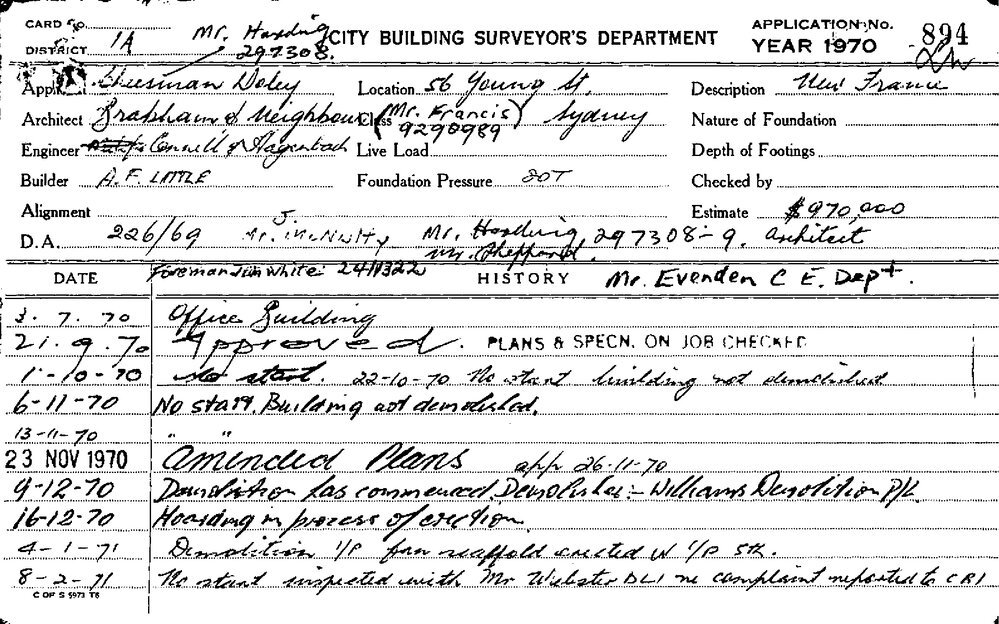 CARD No. Mr. Harding APPLICATION No. 894
DISTRICT 1A 297308. CITY BUILDING SURVEYOR'S DEPARTMENT YEAR 1970
Cheesman Doley Location 56 Young St. Description New Frame
Architect Brabham & Neighbour Class (Mr. Francis) Sydney Nature of Foundation
9290989
Engineer Connell & Hagenbach Live Load Depth of Footings
Builder A.F. LITTLE Foundation Pressure 20T Checked by
Alignment Estimate $970,000
D.A. 226/69 Mr. J. McNulty Mr. Harding 297308-9. architect
Mr. Sheppard.
Foreman White 2411322
DATE HISTORY Mr. Evenden C E. Dept.
3. 7. 70 Office Building
21. 9. 70 Approved. PLANS & SPECN. ON JOB CHECKED
1-10-70 No start. 22-10-70 No start building not demolished
6-11-70 No start. Building not demolished.
13-11-70 " "
23 NOV 1970 Amended Plans app 26-11-70
9-12-70 Demolition has commenced. Demolisher:- Williams Demolition P/L.
16-12-70 Hoarding in process of erection.
4-1-71 Demolition I/P scaffold erected I/P
8-2-71 No start inspected with Mr Webster DLI re complaint reported to CBI
C OF S 5973 T6